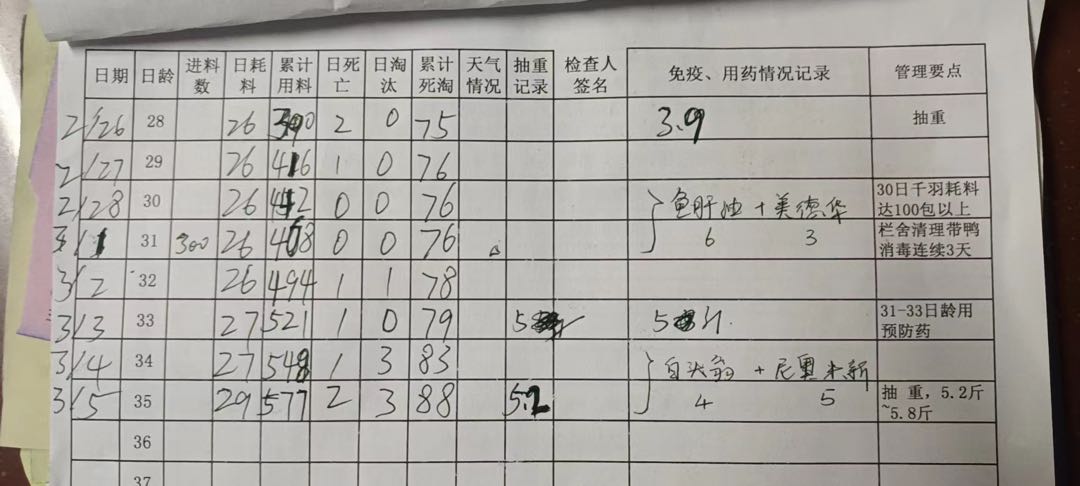 日期 日龄 进料数 日耗料 累计用料 日死亡 日淘汰 累计死淘 天气情况 抽重记录 检查人签名 免疫、用药情况记录 管理要点
2/26 28 26 390 2 0 75 3.9 抽重
2/27 29 26 416 1 0 76
2/28 30 26 442 0 0 76 鱼肝油 + 美德华 30日千羽耗料达100包以上
3/1 31 300 26 468 0 0 76 6 3 栏舍清理带鸭消毒连续3天
3/2 32 26 494 1 1 78
3/3 33 27 521 1 0 79 5 5 31-33日龄用预防药
3/4 34 27 548 1 3 83 白头翁 + 尼里 新
3/5 35 29 577 2 3 88 5.2 4 5 抽 重，5.2斤~5.8斤
36
37